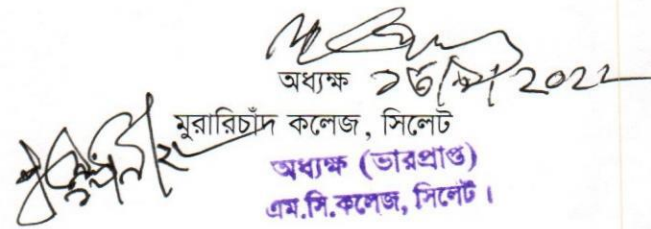 অধ্যক্ষ
মুরারিচাঁদ কলেজ, সিলেট
অধ্যক্ষ (ভারপ্রাপ্ত)
এম.সি.কলেজ, সিলেট।